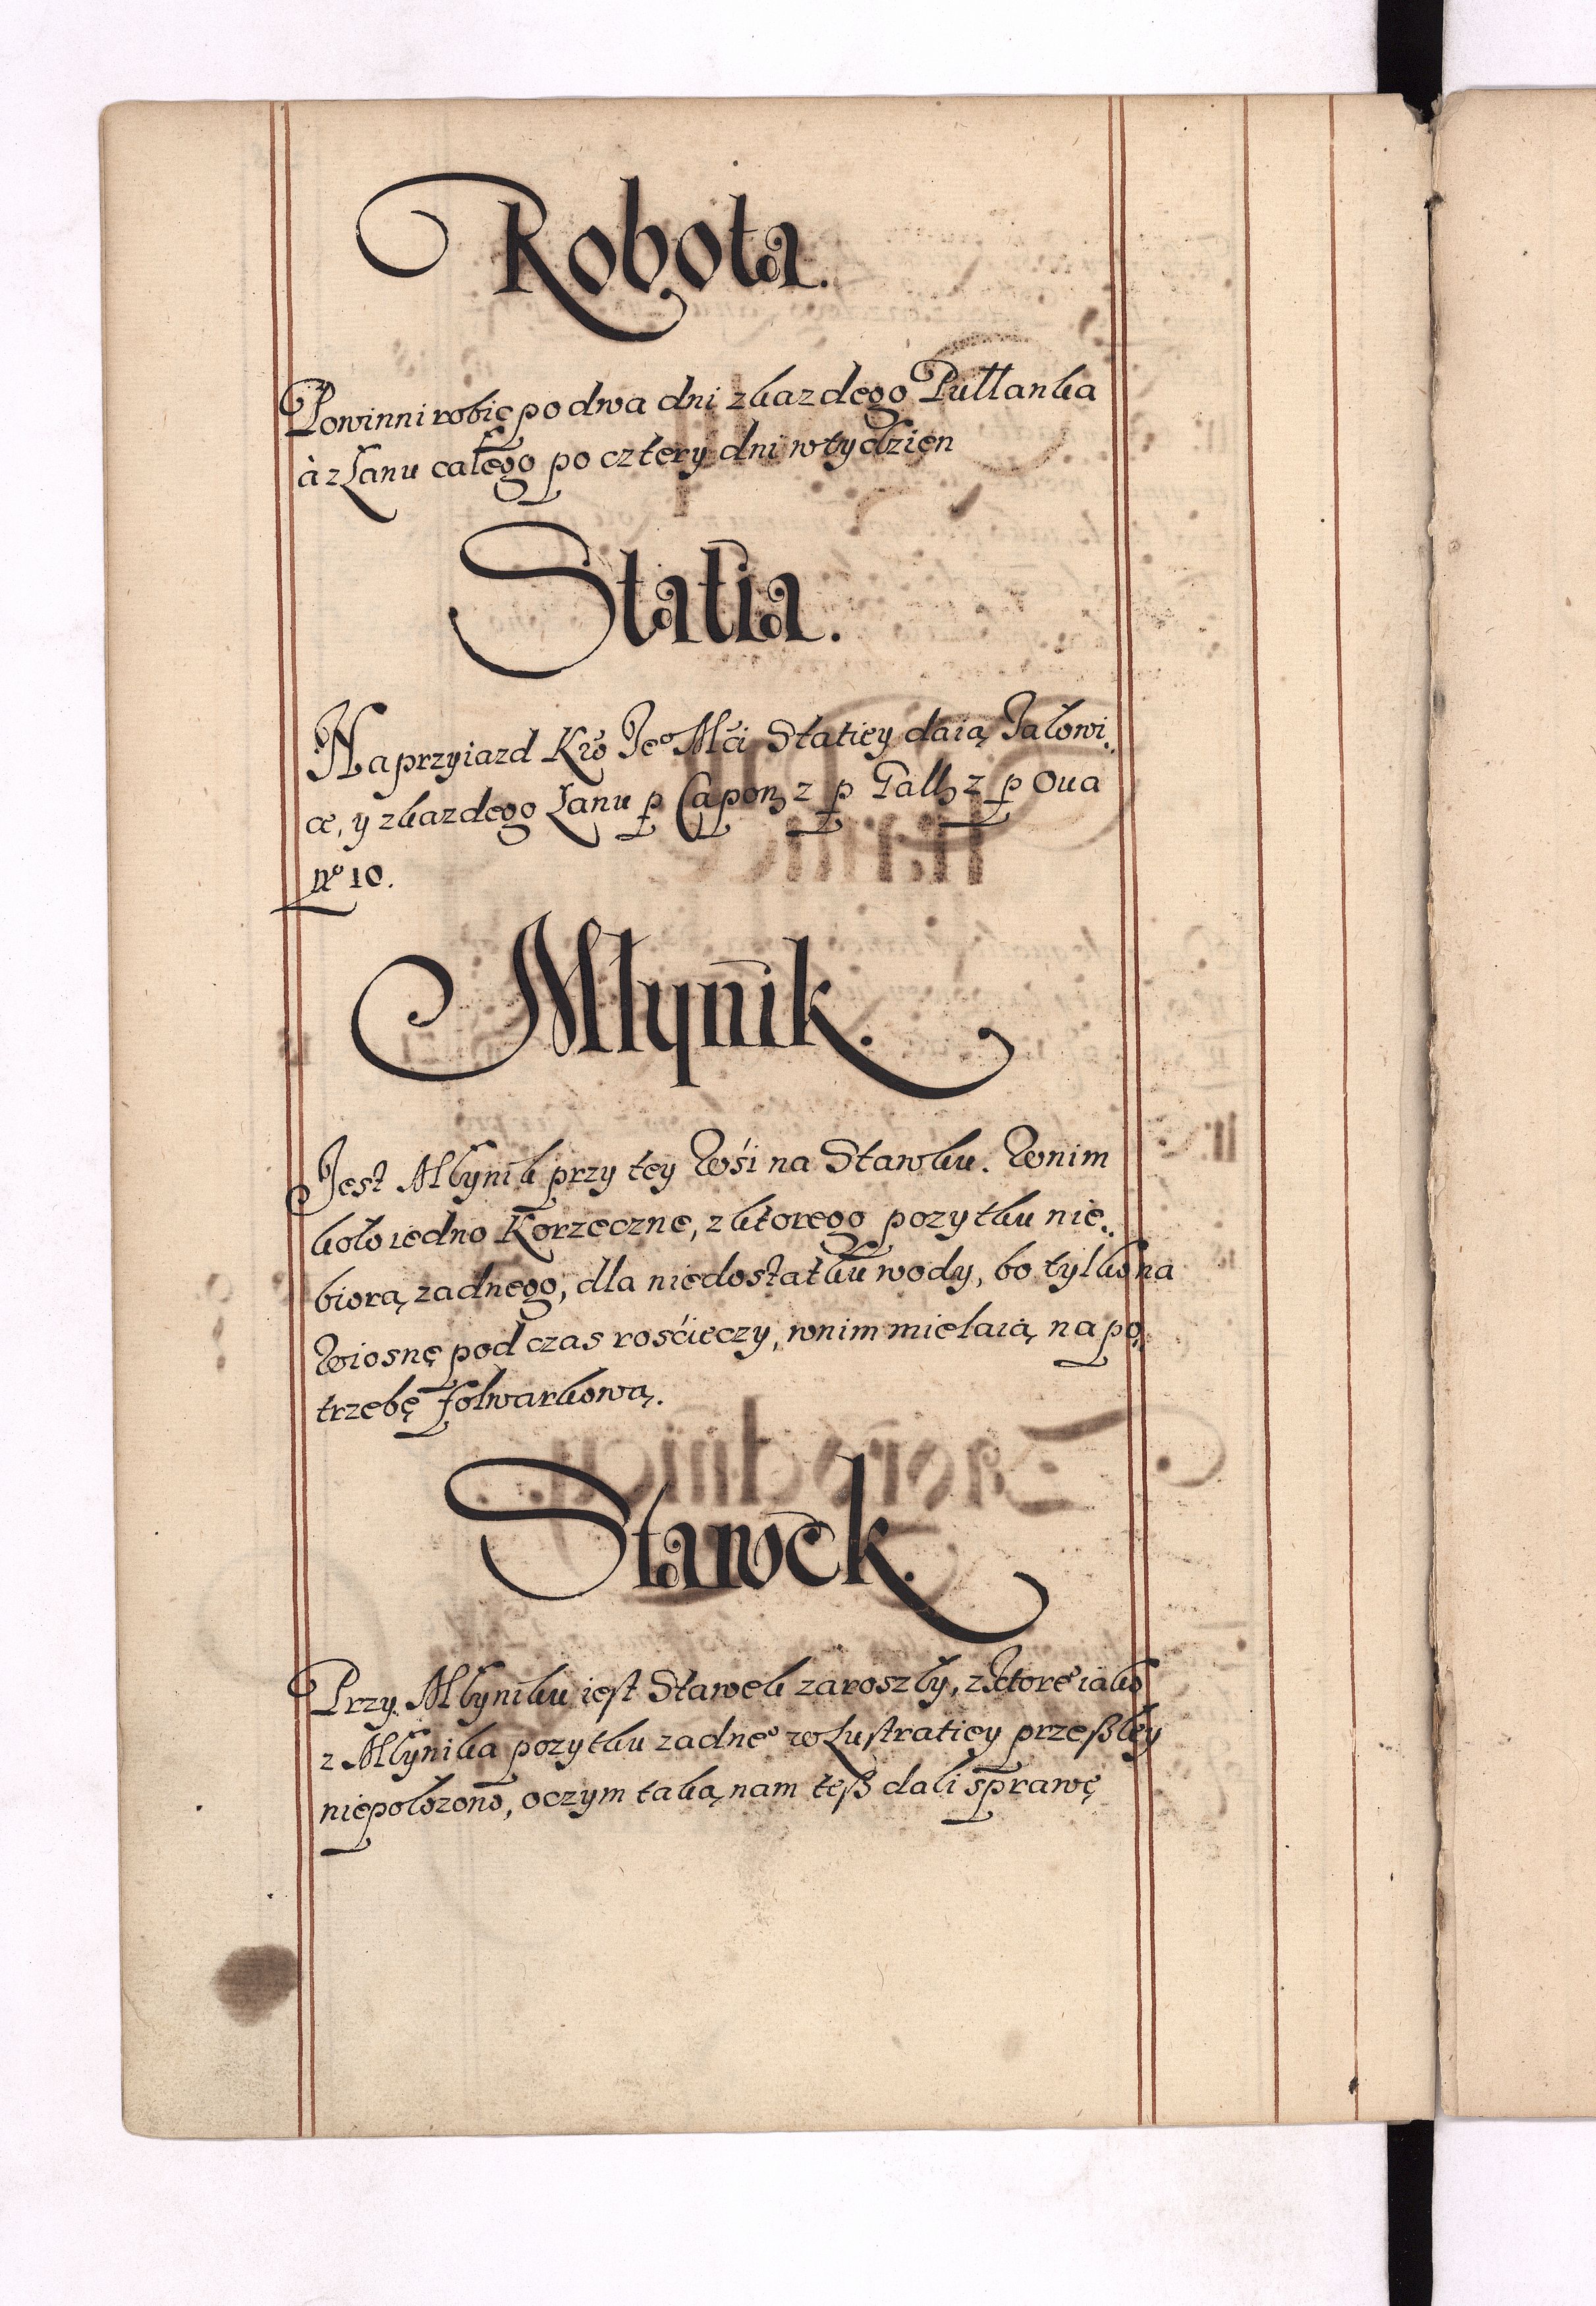 Robota.
Powinni robić po dwa dni z kazdego Pułłanka
à z Łanu całego po cztery dni w tydzien
Statia.
Na przyiazd Kro Jeo Mci Statiey daią Jałowi,,
ce, y z kazdego Łanu p Capon z p Gall z p Oua
no 10.
Młynik.
Jest Młynik przy tey Wsi na Stawku. W nim
koło iedno Korzeczne, z ktorego pozytku nie,,
biorą zadnego, dla niedostatku wody, bo tylko na
Wiosnę pod czas rosćieczy, w nim mielaią na po,,
trzebę folwarkową.
Stawek.
Przy Młyniku iest Stawek zaroszły, z Ktoreo iako
z Młynika pozytku zadneo w Lustratiey przeszłey
niepołozono, o czym taką nam tesz dali sprawę